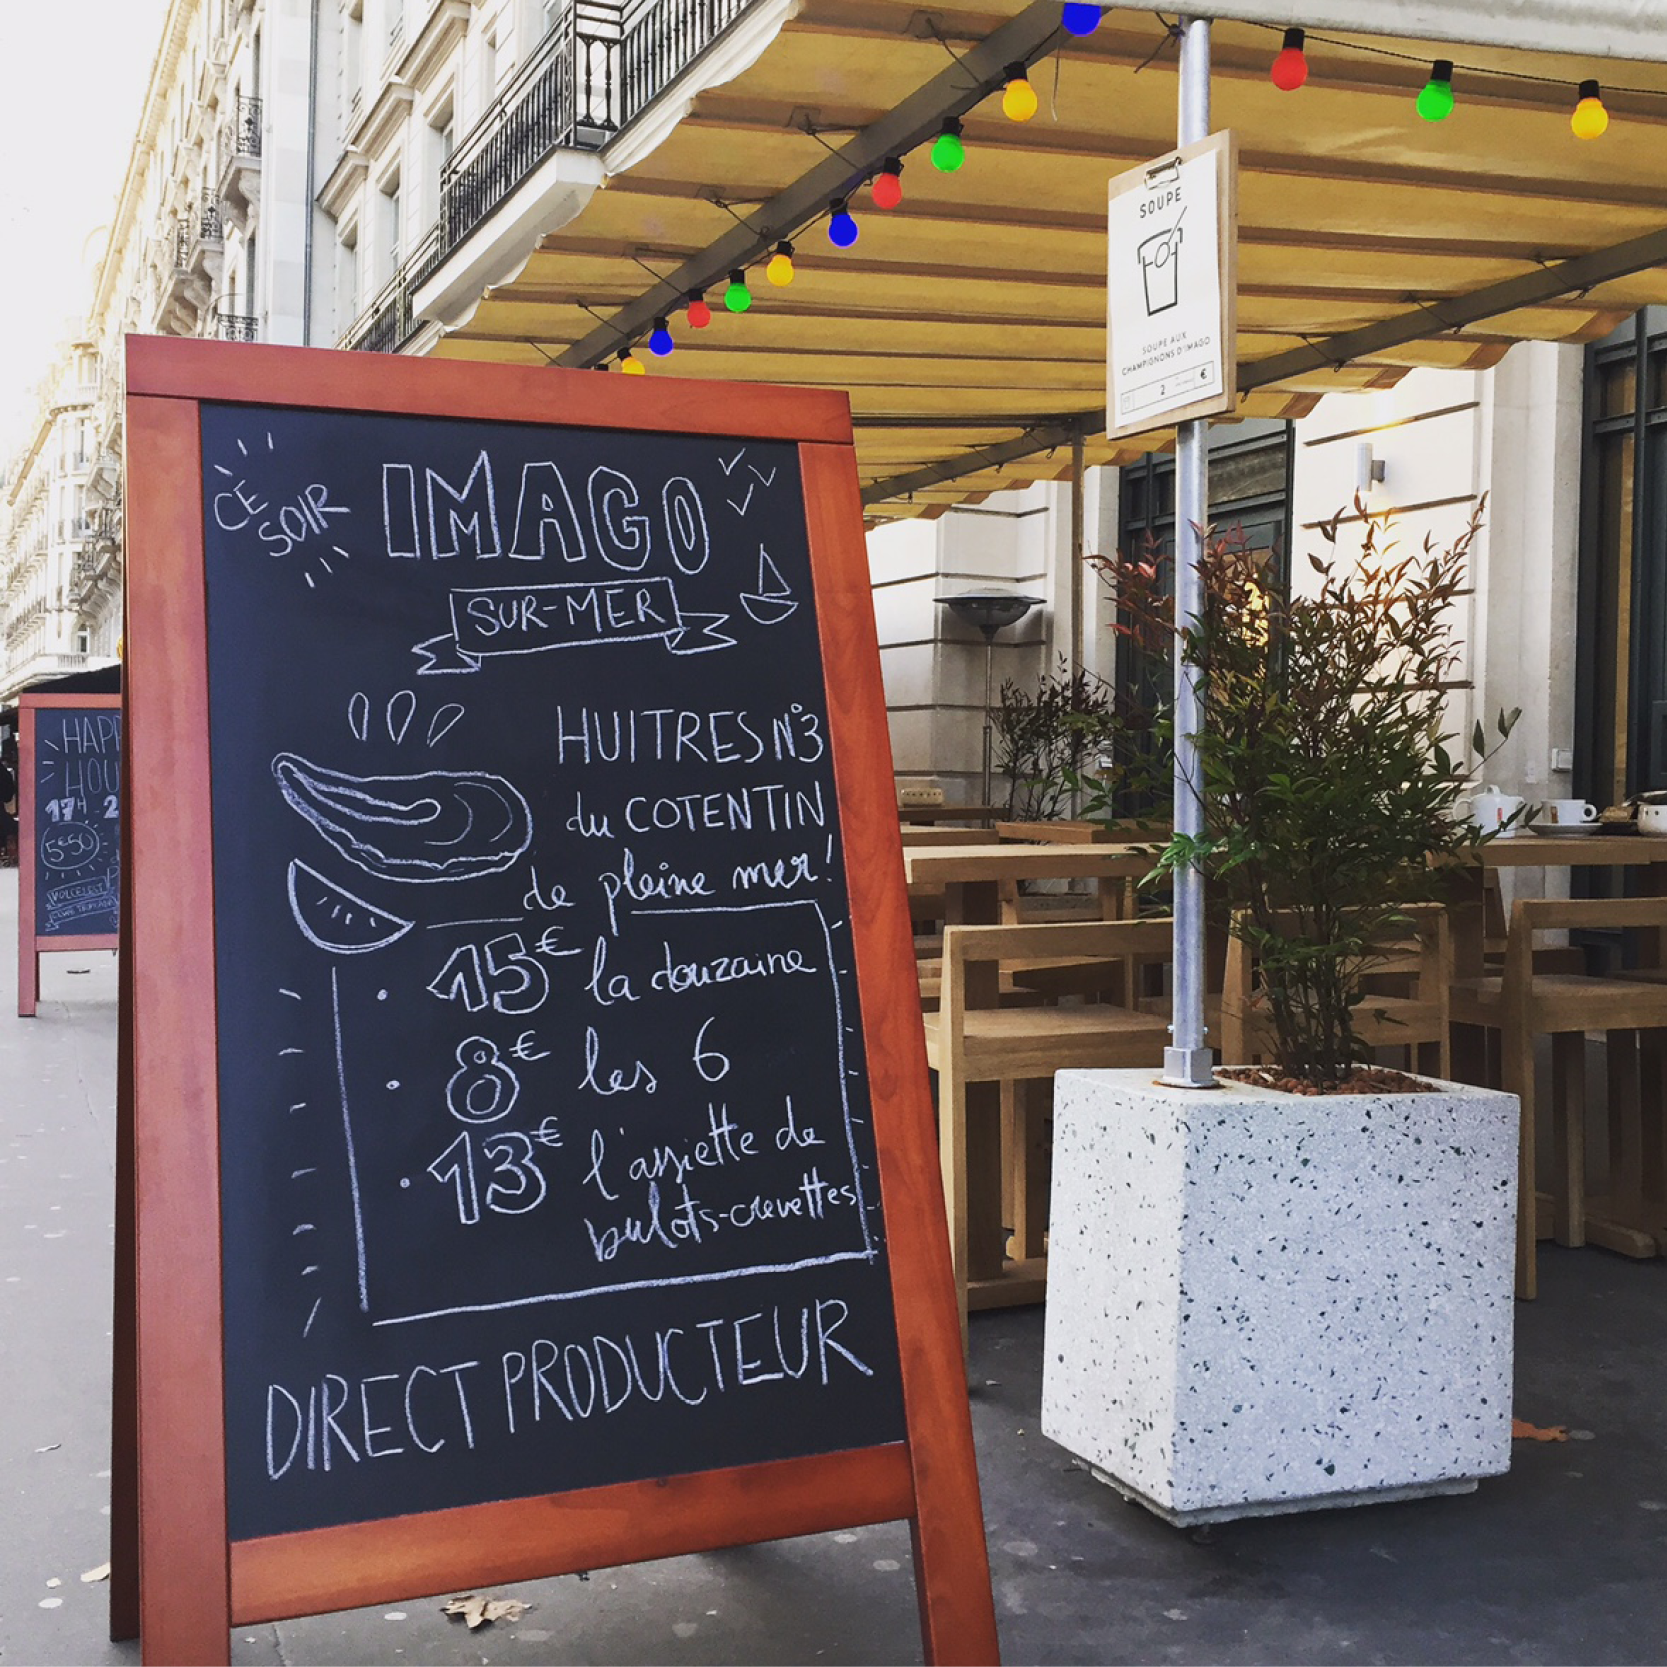 CE
SOIR
IMAGO
SUR-MER
HUITRES N°3
du COTENTIN
de pleine mer!
15€ la douzaine
8€ les 6
13€ l'assiette de
bulots-crevettes
DIRECT PRODUCTEUR
SOUPE
SOUPE AUX
CHAMPIGNONS D'IMAGO
2 €
HAPP
HOU
17H 2
5€50